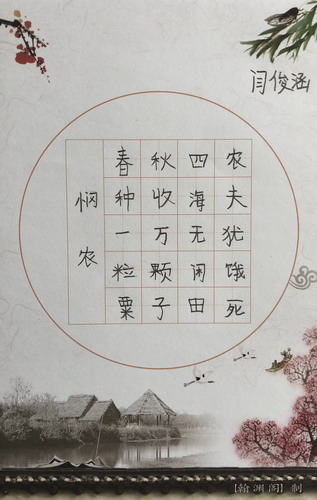 闫俊涵
悯农
春种一粒粟
秋收万颗子
四海无闲田
农夫犹饿死
【翰渊阁】制